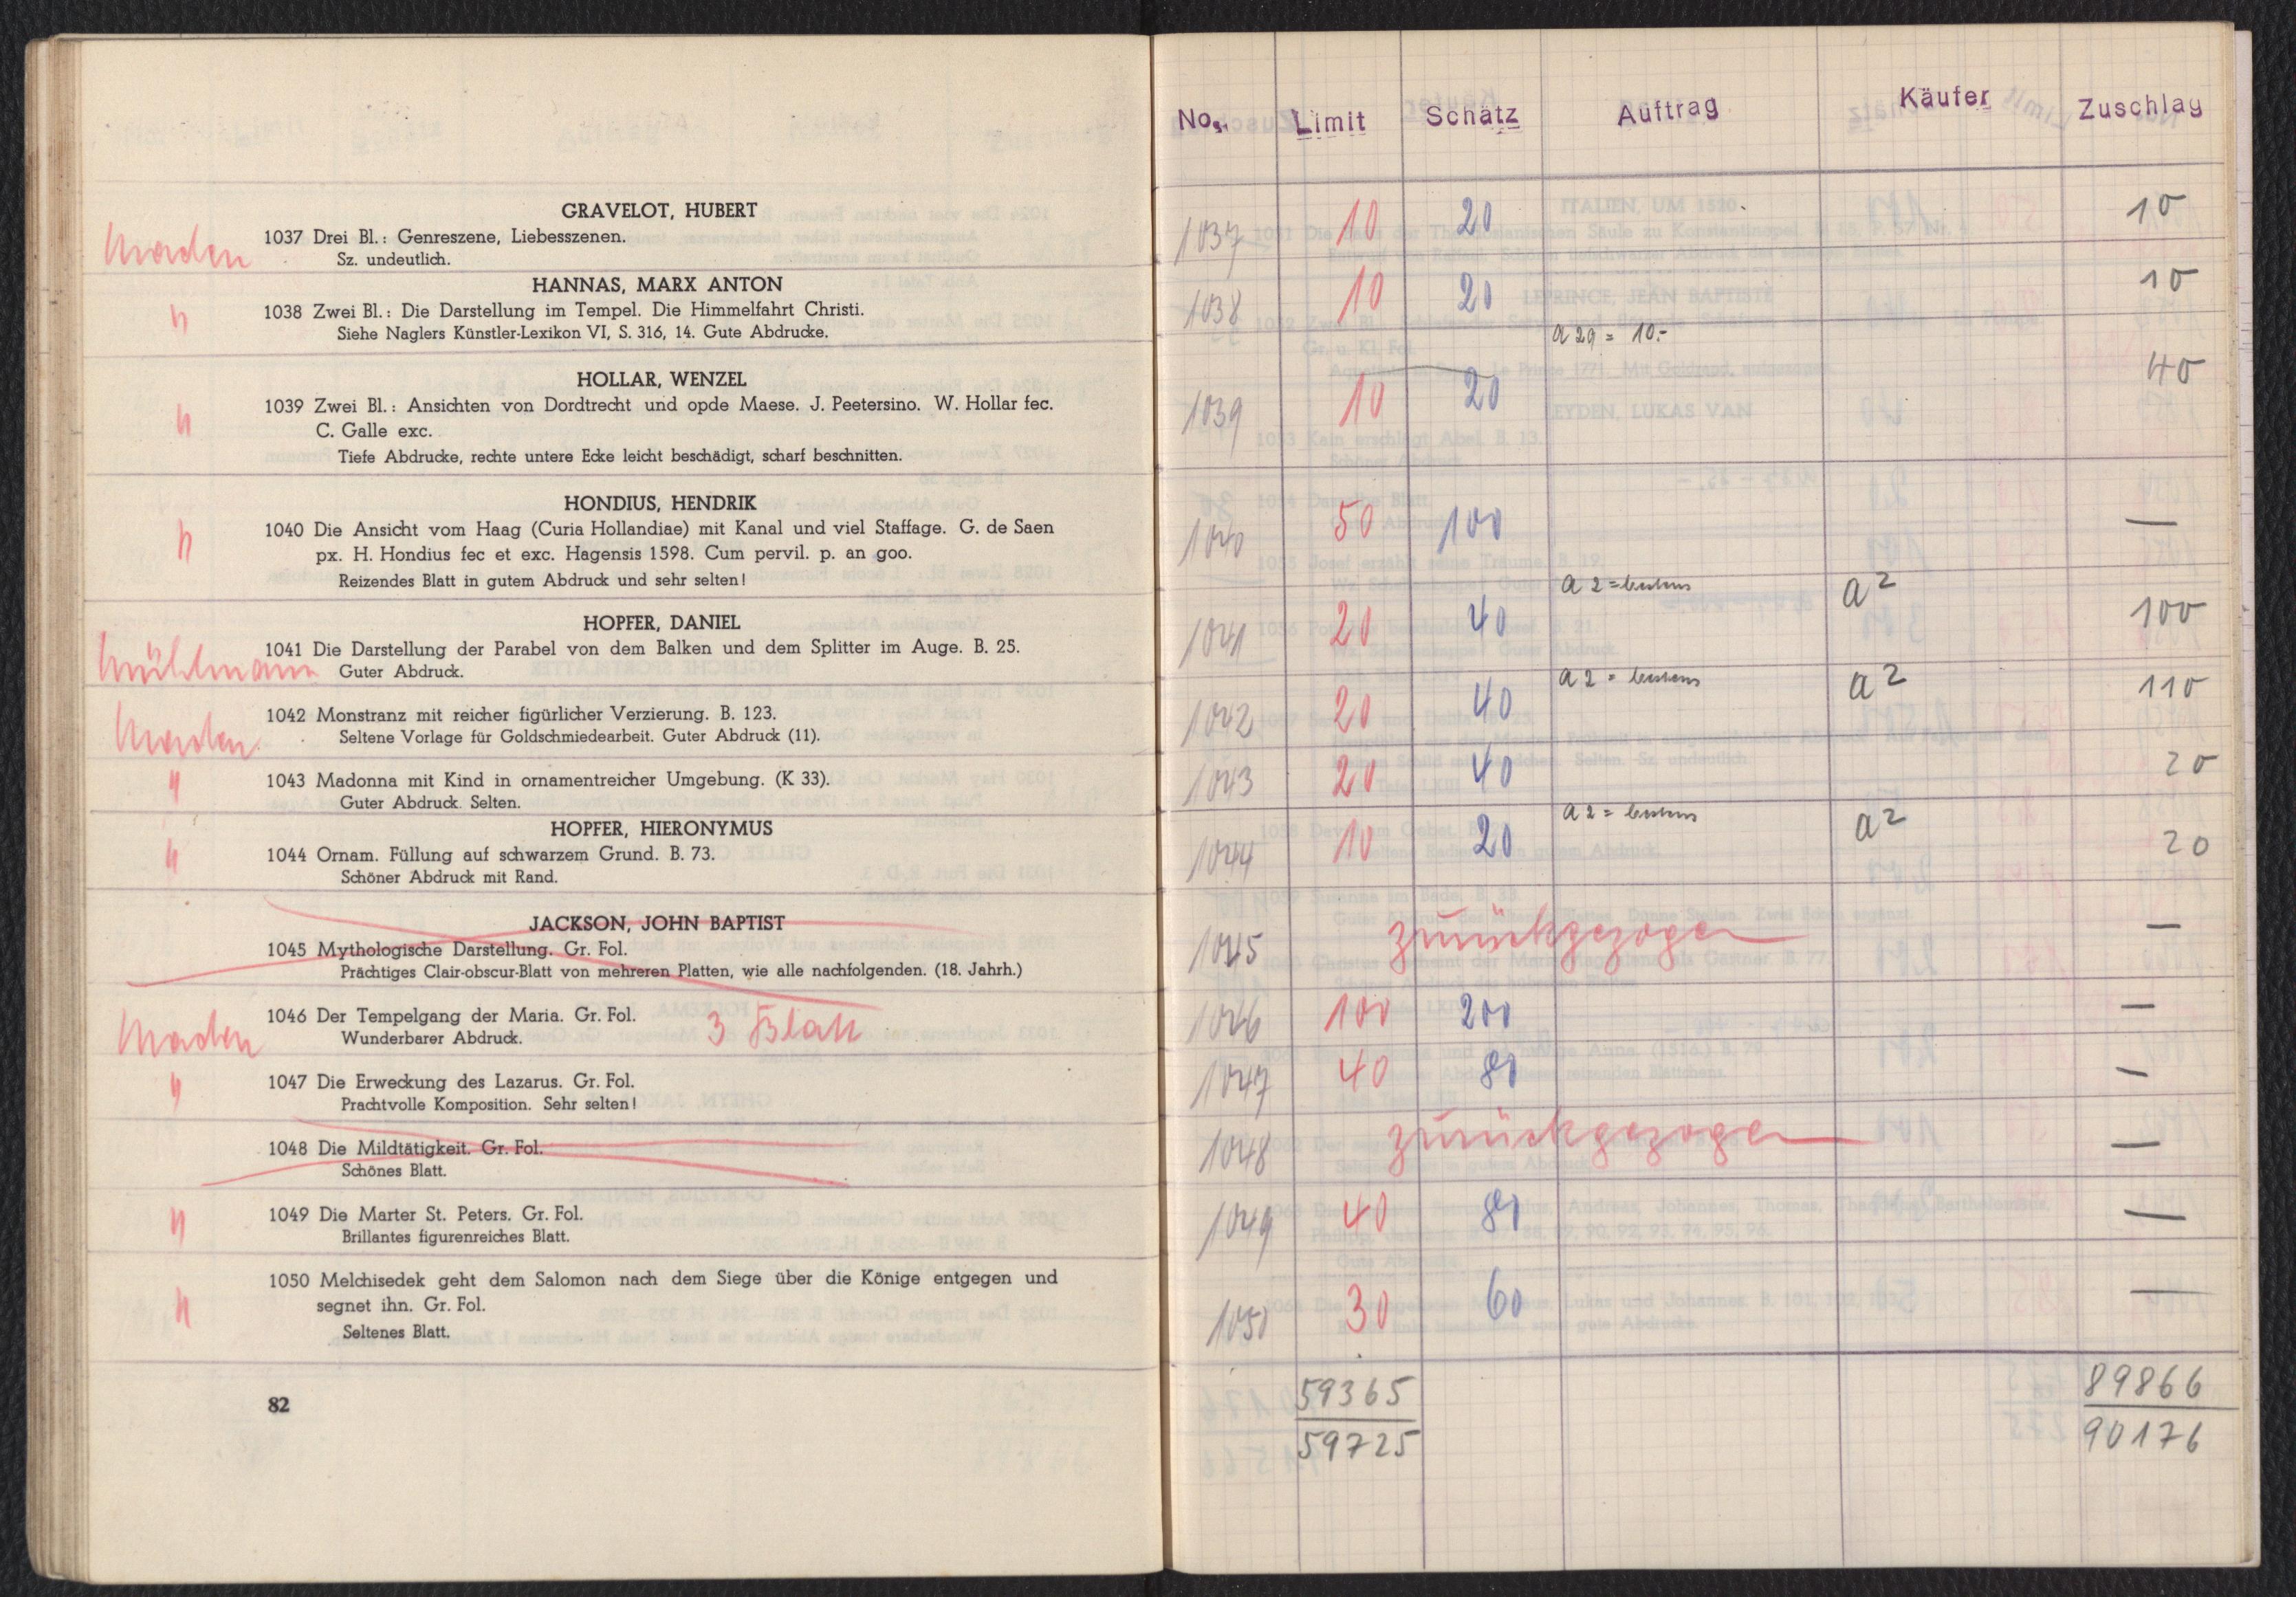 GRAVELOT, HUBERT
1037 Drei Bl.: Genreszene, Liebesszenen.
Sz. undeutlich.
HANNAS, MARX ANTON
"
1038 Zwei Bl.: Die Darstellung im Tempel. Die Himmelfahrt Christi.
Siehe Naglers Künstler-Lexikon VI, S. 316, 14. Gute Abdrucke.
HOLLAR, WENZEL
"
1039 Zwei Bl.: Ansichten von Dordtrecht und opde Maese. J. Peetersino. W. Hollar fec.
C. Galle exc.
Tiefe Abdrucke, rechte untere Ecke leicht beschädigt, scharf beschnitten.
HONDIUS, HENDRIK
"
1040 Die Ansicht vom Haag (Curia Hollandiae) mit Kanal und viel Staffage. G. de Saen
px. H. Hondius fec et exc. Hagensis 1598. Cum pervil. p. an goo.
Reizendes Blatt in gutem Abdruck und sehr selten!
HOPFER, DANIEL
Mühlmann
1041 Die Darstellung der Parabel von dem Balken und dem Splitter im Auge. B. 25.
Guter Abdruck.
1042 Monstranz mit reicher figürlicher Verzierung. B. 123.
Seltene Vorlage für Goldschmiedearbeit. Guter Abdruck (11).
"
1043 Madonna mit Kind in ornamentreicher Umgebung. (K 33).
Guter Abdruck. Selten.
HOPFER, HIERONYMUS
"
1044 Ornam. Füllung auf schwarzem Grund. B. 73.
Schöner Abdruck mit Rand.
JACKSON, JOHN BAPTIST
1045 Mythologische Darstellung. Gr. Fol.
Prächtiges Clair-obscur-Blatt von mehreren Platten, wie alle nachfolgenden. (18. Jahrh.)
1046 Der Tempelgang der Maria. Gr. Fol. 3 Blatt
Wunderbarer Abdruck.
"
1047 Die Erweckung des Lazarus. Gr. Fol.
Prachtvolle Komposition. Sehr selten!
1048 Die Mildtätigkeit. Gr. Fol.
Schönes Blatt.
"
1049 Die Marter St. Peters. Gr. Fol.
Brillantes figurenreiches Blatt.
"
1050 Melchisedek geht dem Salomon nach dem Siege über die Könige entgegen und
segnet ihn. Gr. Fol.
Seltenes Blatt.
82
No. Limit Schätz Auftrag Käufer Zuschlag
1037 10 20 10
1038 10 20 10
a 29 = 10.-
1039 10 20 40
1040 50 100 —
a 2 = bestens a2
1041 20 40 100
a 2 = bestens a2
1042 20 40 110
1043 20 40 20
a 2 = bestens a2
1044 10 20 20
1045 zurückgezogen —
1046 100 200 —
1047 40 80 —
1048 zurückgezogen —
1049 40 80 —
1050 30 60 —
59365 89866
59725 90176